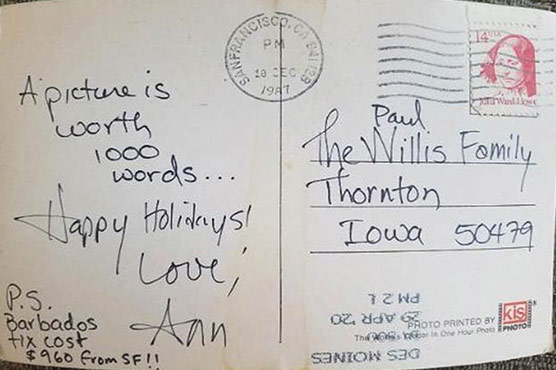 A picture is
worth
1000
words...
Happy Holidays!
Love,
Ann
P.S.
Barbados
tix cost
$960 from SF!!
SAN FRANCISCO, CA
PM
18 DEC
1987
14 USA
Julia Ward Howe
Paul
The Willis Family
Thornton
Iowa 50479
DES MOINES
29 APR '20
PM 2 L
PHOTO PRINTED BY
kis
PHOTO
The World's Leader In One Hour Photo